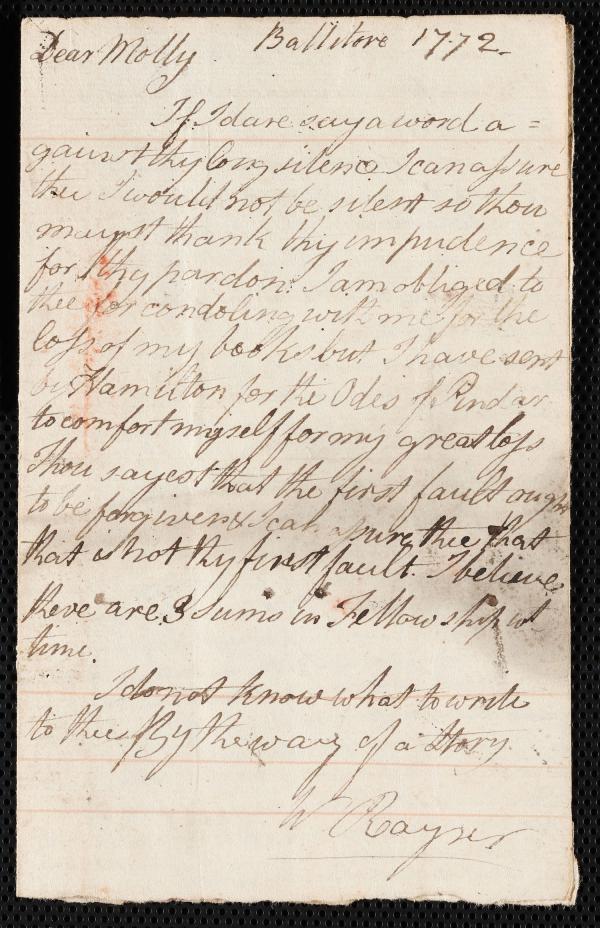 Dear Molly Ballitore 1772.
If I dare say a word a=
gainst thy long silence I can assure
thee I would not be silent so thou
mayst thank thy impudence
for thy pardon. I am obliged to
thee for condoling with me for the
loss of my books but I have sent
by Hamilton for the Odes of Pindar
to comfort myself for my great loss
Thou sayest that the first fault ought
to be forgiven & I can assure thee that
that is not thy first fault. I believe
there are 3 sums in Fellowship wt
time.
I do not know what to write
to thee. By the way of a story
W Rayner